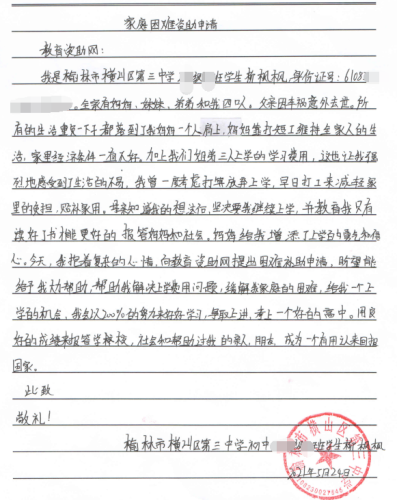 家庭困难资助申请
教育资助网：
我是榆林市横山区第三中学， 班学生 枫枫，身份证号：6108
。全家有妈妈、妹妹、弟弟和我四口人。父亲因车祸意外去世。所
有的生活重负一下子都落到了我妈妈一个人肩上，妈妈靠打短工维持全家人的生
活，家里经济条件一直不好。加上我们姐弟三人上学的学习费用，这也让我强
烈地感受到了生活的不易，我曾一度考虑打算放弃上学，早日打工来减轻家
里的负担，贴补家用。母亲知道我的想法后，坚决要我继续上学，并教育我只有
读好了书才能更好的报答妈妈和社会。妈妈给我增添了上学的勇气和信
心。今天，我抱着复杂的心情，向教育资助网提出困难补助申请，盼望能
给予我力帮助，帮助我解决学费用问题，缓解家庭的困难，给我一个上
学的机会，我会以200%的努力来好好学习，争取上进，考上一个好的高中。用良
好的成绩来报答学校，社会和帮助过我的家人，朋友，成为一个有用人来回报
国家。
此致
敬礼！
榆林市横山区第三中学初中 班学生 枫枫
2021年5月24日